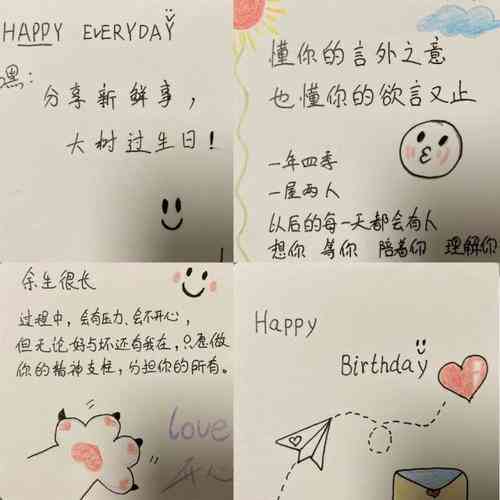 HAPPY EVERYDAY
嘿:
分享新鲜事，
大树过生日!
懂你的言外之意
也懂你的欲言又止
一年四季
一屋两人
以后的每一天都会有人
想你 等你 陪着你 理解你
余生很长
过程中，会有压力、会不开心，
但无论好与坏还有我在，只要做
你的精神支柱，分担你的所有。
love
开心
Happy
Birthday